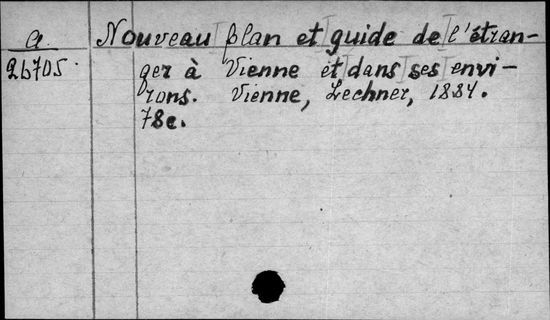 a.
Nouveau plan et guide de l'étran-
26705.
ger à Vienne et dans ses envi-
rons. Vienne, Lechner, 1884.
78e.